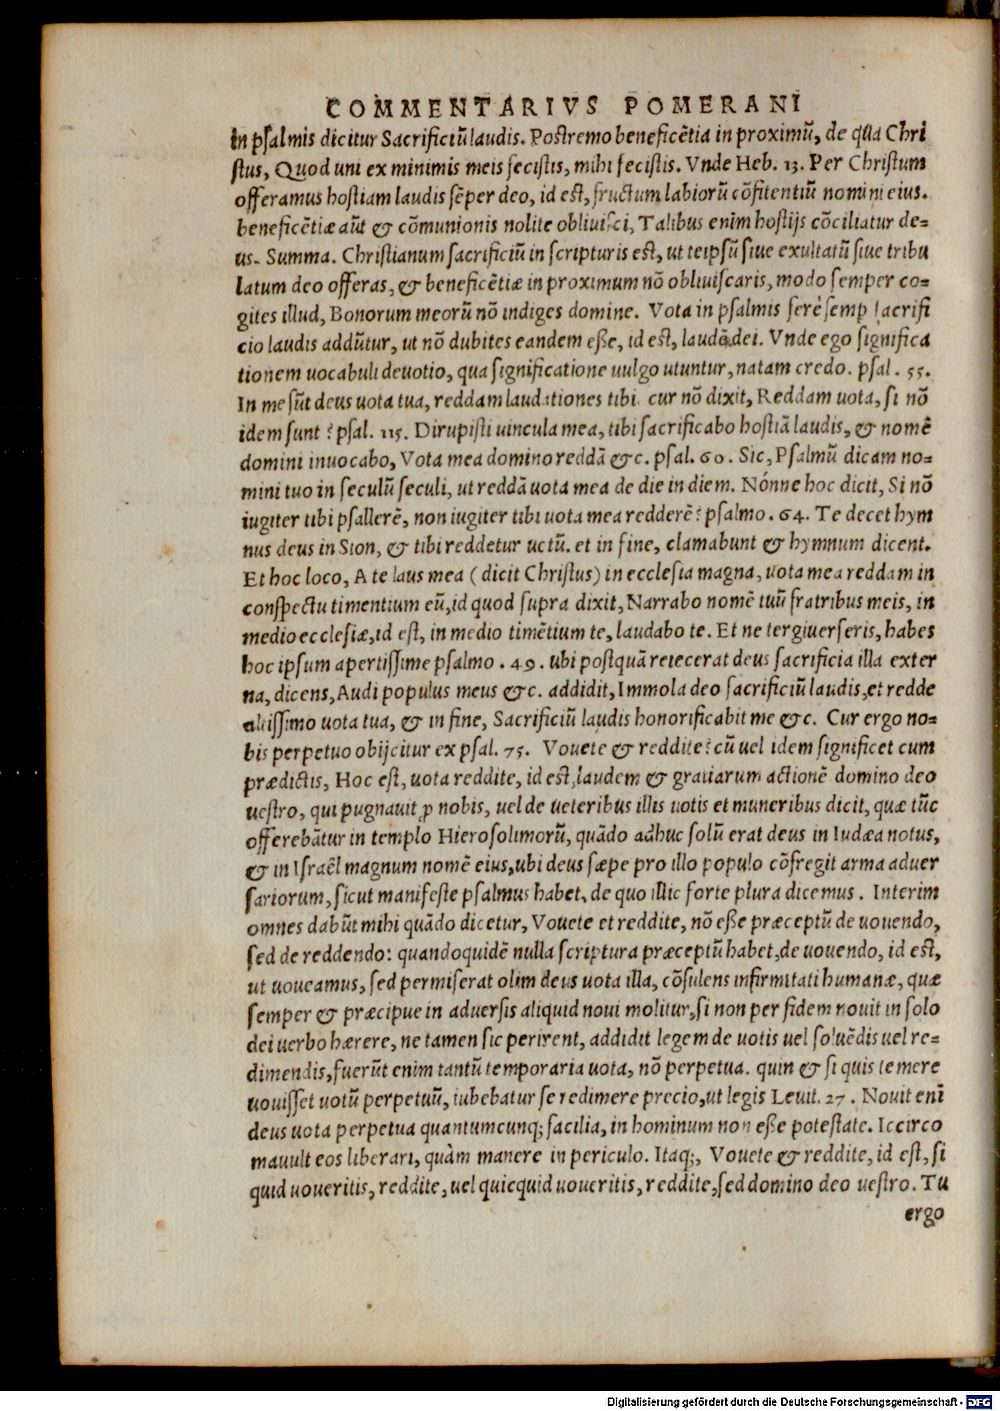 COMMENTARIVS POMERANI
in psalmis dicitur Sacrificiū laudis. Postremo beneficētia in proximū, de qua Chri
stus, Quod uni ex minimis meis fecistis, mihi fecistis. Vnde Heb. 13. Per Christum
offeramus hostiam laudis sēper deo, id est, fructum labiorū cōfitentiū nomini eius.
beneficētiæ aūt & cōmunionis nolite obliuisci, Talibus enim hostijs cōciliatur de=
us. Summa. Christianum sacrificiū in scripturis est, ut teipsū siue exultatū siue tribu
latum deo offeras, & beneficētiæ in proximum nō obliuiscaris, modo semper co=
gites illud, Bonorum meorū nō indiges domine. Vota in psalmis ferè semp sacrifi
cio laudis addūtur, ut nō dubites eandem eße, id est, laudē dei. Vnde ego significa
tionem uocabuli deuotio, qua significatione uulgo utuntur, natam credo. psal. 55.
In me sūt deus uota tua, reddam laudationes tibi cur nō dixit, Reddam uota, si nō
idem sunt? psal. 115. Dirupisti uincula mea, tibi sacrificabo hostiā laudis, & nomē
domini inuocabo, Vota mea domino reddā &c. psal. 60. Sic, Psalmū dicam no=
mini tuo in seculū seculi, ut reddā uota mea de die in diem. Nónne hoc dicit, Si nō
iugiter tibi psallerē, non iugiter tibi uota mea redderē? psalmo. 64. Te decet hym
nus deus in Sion, & tibi reddetur uotū. et in fine, clamabunt & hymnum dicent.
Et hoc loco, A te laus mea (dicit Christus) in ecclesia magna, uota mea reddam in
conspectu timentium eū, id quod supra dixit, Narrabo nomē tuū fratribus meis, in
medio ecclesiæ, id est, in medio timētium te, laudabo te. Et ne tergiuerseris, habes
hoc ipsum apertissime psalmo. 49. ubi postquā reiecerat deus sacrificia illa exter
na, dicens, Audi populus meus &c. addidit, Immola deo sacrificiū laudis, et redde
altissimo uota tua, & in fine, Sacrificiū laudis honorificabit me &c. Cur ergo no=
bis perpetuo obijcitur ex psal. 75. Vouete & reddite? cū uel idem significet cum
prædictis, Hoc est, uota reddite, id est, laudem & gratiarum actionē domino deo
uestro, qui pugnauit ꝓ nobis, uel de ueteribus illis uotis et muneribus dicit, quæ tūc
offerebātur in templo Hierosolimorū, quādo adhuc solū erat deus in Iudæa notus,
& in Israēl magnum nomē eius, ubi deus sæpe pro illo populo cōfregit arma aduer
sariorum, sicut manifeste psalmus habet, de quo illic forte plura dicemus. Interim
omnes dabūt mihi quādo dicetur, Vouete et reddite, nō eße præceptū de uouendo,
sed de reddendo: quandoquidē nulla scriptura præceptū habet, de uouendo, id est,
ut uoueamus, sed permiserat olim deus uota illa, cōsulens infirmitati humanæ, quæ
semper & præcipue in aduersis aliquid noui molitur, si non per fidem nouit in solo
dei uerbo hærere, ne tamen sic perirent, addidit legem de uotis uel soluēdis uel re=
dimendis, fuerūt enim tantū temporaria uota, nō perpetua. quin & si quis temere
uouisset uotū perpetuū, iubebatur se redimere precio, ut legis Leuit. 27. Nouit enī
deus uota perpetua quantumcunq; facilia, in hominum non eße potestate. Iccirco
mauult eos liberari, quàm manere in periculo. Itaq;, Vouete & reddite, id est, si
quid uoueritis, reddite, uel quicquid uoueritis, reddite, sed domino deo uestro. Tu
ergo
Digitalisierung gefördert durch die Deutsche Forschungsgemeinschaft - DFG